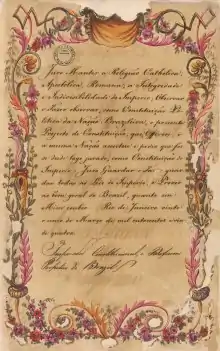 Juro Manter a Religião Catholica
Apostolica Romana, a Integridade
e Indivisibilidade do Imperio, Observar
e Fazer observar, como Constituição Po-
litica da Nação Brazileira, o presente
Projecto de Constituição, que Offereci, e
a mesma Nação aceitou e pedio que fos-
se desde logo jurado, como Constituição do
Imperio; Juro Guardar e Fazer guar-
dar todas as Leis do Imperio, e Prover
ao bem geral do Brazil, quanto em
Mim couber. Rio de Janeiro vinte
e cinco de Março de mil oitocentos e vin-
te quatro.
Imperador Constitucional, e Defensor
Perpetuo do Brazil